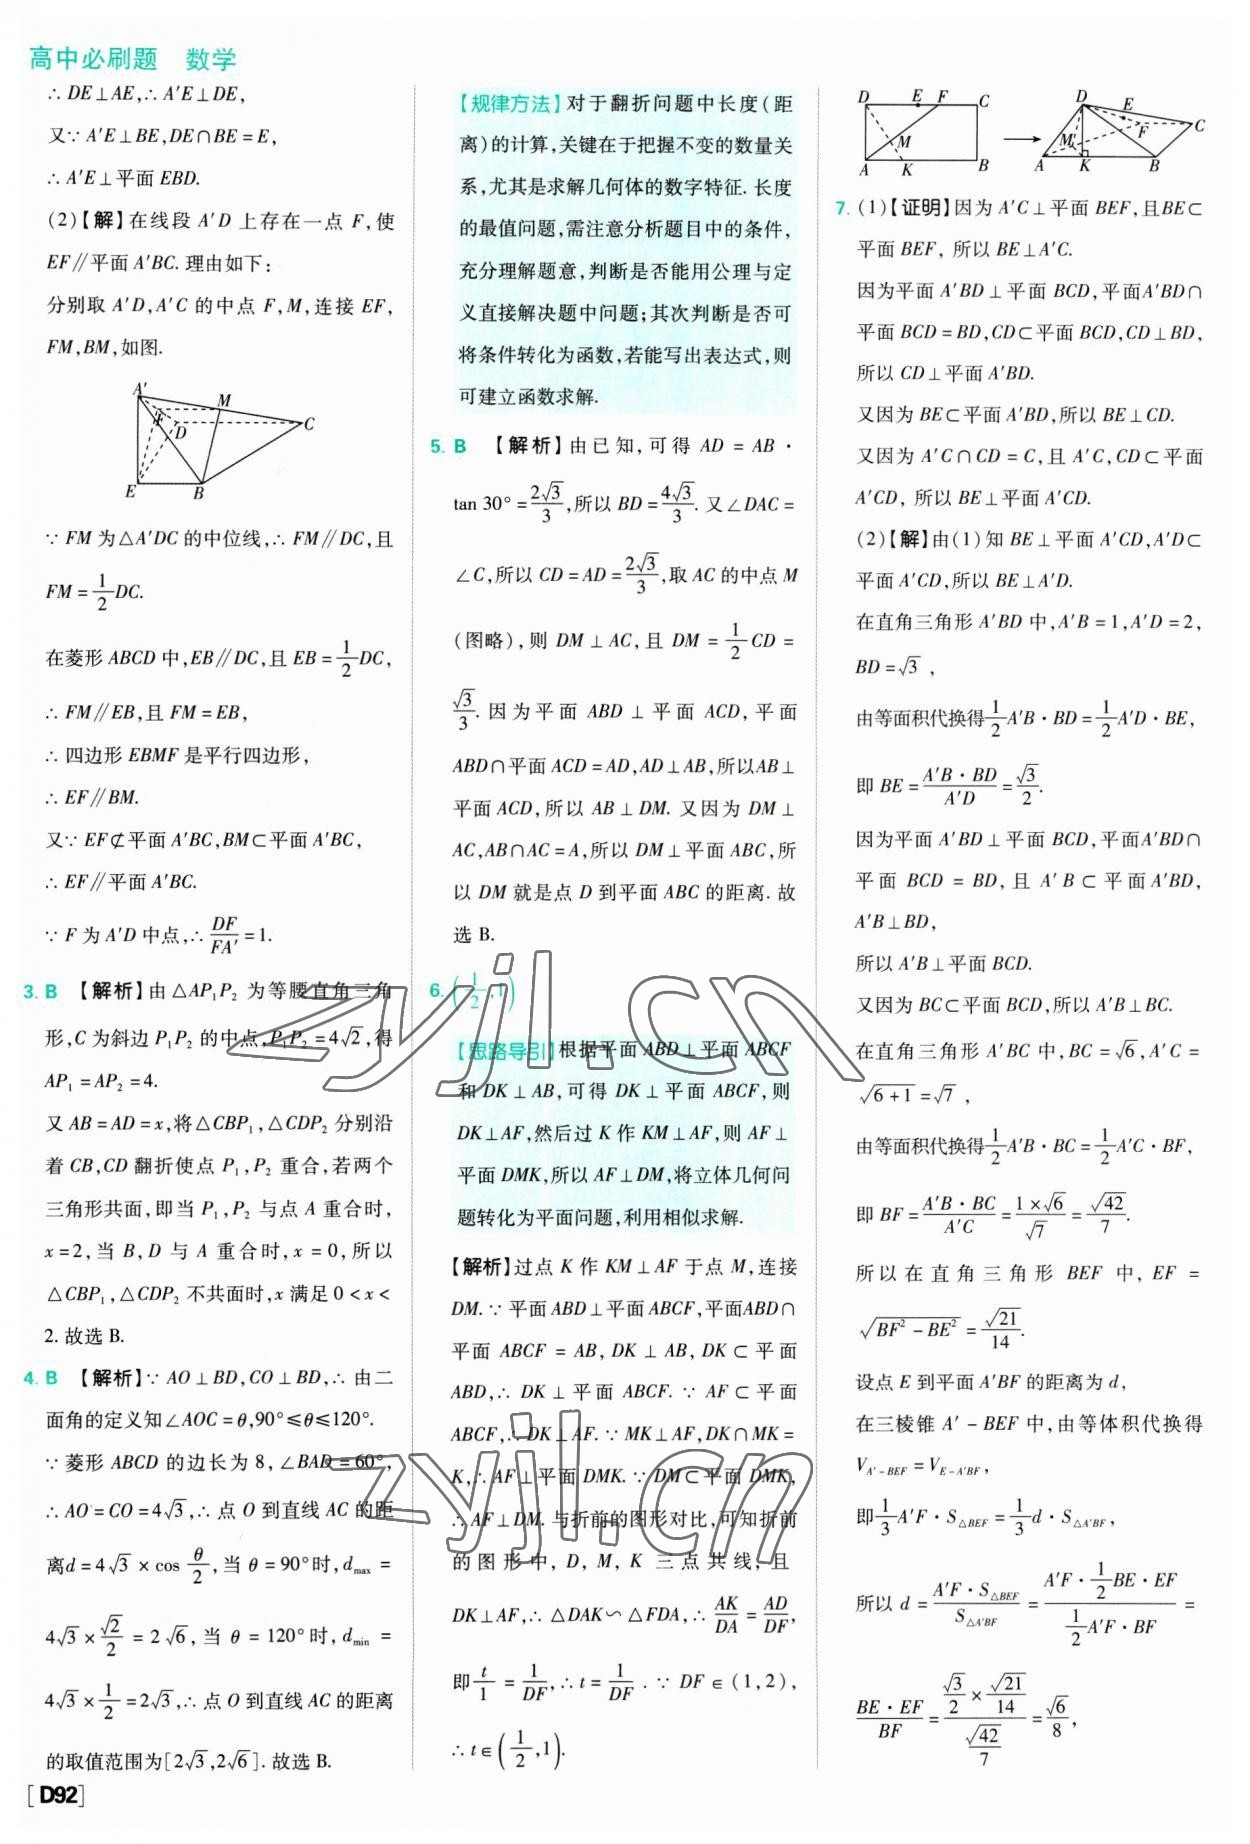 高中必刷题 数学
∴ DE⊥AE,∴ A′E⊥DE,
又∵ A′E⊥BE,DE∩BE=E,
∴ A′E⊥平面 EBD.
(2)【解】在线段 A′D 上存在一点 F,使
EF∥平面 A′BC. 理由如下:
分别取 A′D,A′C 的中点 F,M,连接 EF,
FM,BM,如图.
A′ M F D C E B
∵ FM 为△A′DC 的中位线,∴ FM∥DC,且
FM=1/2 DC.
在菱形 ABCD 中,EB∥DC,且 EB=1/2 DC,
∴ FM∥EB,且 FM=EB,
∴ 四边形 EBMF 是平行四边形,
∴ EF∥BM.
又∵ EF⊄平面 A′BC,BM⊂平面 A′BC,
∴ EF∥平面 A′BC.
∵ F 为 A′D 中点,∴ DF/FA′=1.
3. B 【解析】由△AP₁P₂ 为等腰直角三角
形,C 为斜边 P₁P₂ 的中点,P₁P₂=4√2,得
AP₁=AP₂=4.
又 AB=AD=x,将△CBP₁,△CDP₂ 分别沿
着 CB,CD 翻折使点 P₁,P₂ 重合,若两个
三角形共面,即当 P₁,P₂ 与点 A 重合时,
x=2,当 B,D 与 A 重合时,x=0,所以
△CBP₁,△CDP₂ 不共面时,x 满足 0<x<
2. 故选 B.
4. B 【解析】∵ AO⊥BD,CO⊥BD,∴ 由二
面角的定义知∠AOC=θ,90°≤θ≤120°.
∵ 菱形 ABCD 的边长为 8,∠BAD=60°,
∴ AO=CO=4√3,∴ 点 O 到直线 AC 的距
离d=4√3×cos θ/2,当 θ=90°时,d_max=
4√3×√2/2=2√6,当 θ=120°时,d_min=
4√3×1/2=2√3,∴ 点 O 到直线 AC 的距离
的取值范围为[2√3,2√6]. 故选 B.
[D92]
【规律方法】对于翻折问题中长度(距
离)的计算,关键在于把握不变的数量关
系,尤其是求解几何体的数字特征. 长度
的最值问题,需注意分析题目中的条件,
充分理解题意,判断是否能用公理与定
义直接解决题中问题;其次判断是否可
将条件转化为函数,若能写出表达式,则
可建立函数求解.
5. B 【解析】由已知,可得 AD=AB·
tan 30°=2√3/3,所以 BD=4√3/3. 又∠DAC=
∠C,所以 CD=AD=2√3/3,取 AC 的中点 M
(图略),则 DM⊥AC,且 DM=1/2 CD=
√3/3. 因为平面 ABD⊥平面 ACD,平面
ABD∩平面 ACD=AD,AD⊥AB,所以AB⊥
平面 ACD,所以 AB⊥DM. 又因为 DM⊥
AC,AB∩AC=A,所以 DM⊥平面 ABC,所
以 DM 就是点 D 到平面 ABC 的距离. 故
选 B.
6. (1/2,1)
【思路导引】根据平面 ABD⊥平面 ABCF
和 DK⊥AB,可得 DK⊥平面 ABCF,则
DK⊥AF,然后过 K 作 KM⊥AF,则 AF⊥
平面 DMK,所以 AF⊥DM,将立体几何问
题转化为平面问题,利用相似求解.
【解析】过点 K 作 KM⊥AF 于点 M,连接
DM. ∵ 平面 ABD⊥平面 ABCF,平面ABD∩
平面 ABCF=AB,DK⊥AB,DK⊂平面
ABD,∴ DK⊥平面 ABCF. ∵ AF⊂平面
ABCF,∴ DK⊥AF. ∵ MK⊥AF,DK∩MK=
K,∴ AF⊥平面 DMK. ∵ DM⊂平面 DMK,
∴ AF⊥DM. 与折前的图形对比,可知折前
的图形中,D,M,K 三点共线,且
DK⊥AF,∴ △DAK∽△FDA,∴ AK/DA=AD/DF,
即 t/1=1/DF,∴ t=1/DF. ∵ DF∈(1,2),
∴ t∈(1/2,1).
D E F C M A K B D E C F M′ A K B
7. (1)【证明】因为 A′C⊥平面 BEF,且BE⊂
平面 BEF, 所以 BE⊥A′C.
因为平面 A′BD⊥平面 BCD,平面A′BD∩
平面 BCD=BD,CD⊂平面 BCD,CD⊥BD,
所以 CD⊥平面 A′BD.
又因为 BE⊂平面 A′BD,所以 BE⊥CD.
又因为 A′C∩CD=C,且 A′C,CD⊂平面
A′CD, 所以 BE⊥平面 A′CD.
(2)【解】由(1)知 BE⊥平面 A′CD,A′D⊂
平面 A′CD,所以 BE⊥A′D.
在直角三角形 A′BD 中,A′B=1,A′D=2,
BD=√3,
由等面积代换得1/2 A′B·BD=1/2 A′D·BE,
即 BE=A′B·BD/A′D=√3/2.
因为平面 A′BD⊥平面 BCD,平面A′BD∩
平面 BCD=BD,且 A′B⊂平面A′BD,
A′B⊥BD,
所以 A′B⊥平面 BCD.
又因为 BC⊂平面 BCD,所以 A′B⊥BC.
在直角三角形 A′BC 中,BC=√6,A′C=
√(6+1)=√7,
由等面积代换得1/2 A′B·BC=1/2 A′C·BF,
即 BF=A′B·BC/A′C=1×√6/√7=√42/7.
所以在直角三角形 BEF 中,EF=
√(BF²−BE²)=√21/14.
设点 E 到平面 A′BF 的距离为 d,
在三棱锥 A′−BEF 中,由等体积代换得
V_A′−BEF=V_E−A′BF,
即1/3 A′F·S△BEF=1/3 d·S△A′BF,
所以 d=A′F·S△BEF/S△A′BF=(A′F·1/2 BE·EF)/(1/2 A′F·BF)=
BE·EF/BF=(√3/2×√21/14)/(√42/7)=√6/8,
zyjl.cn
zyjl.cn